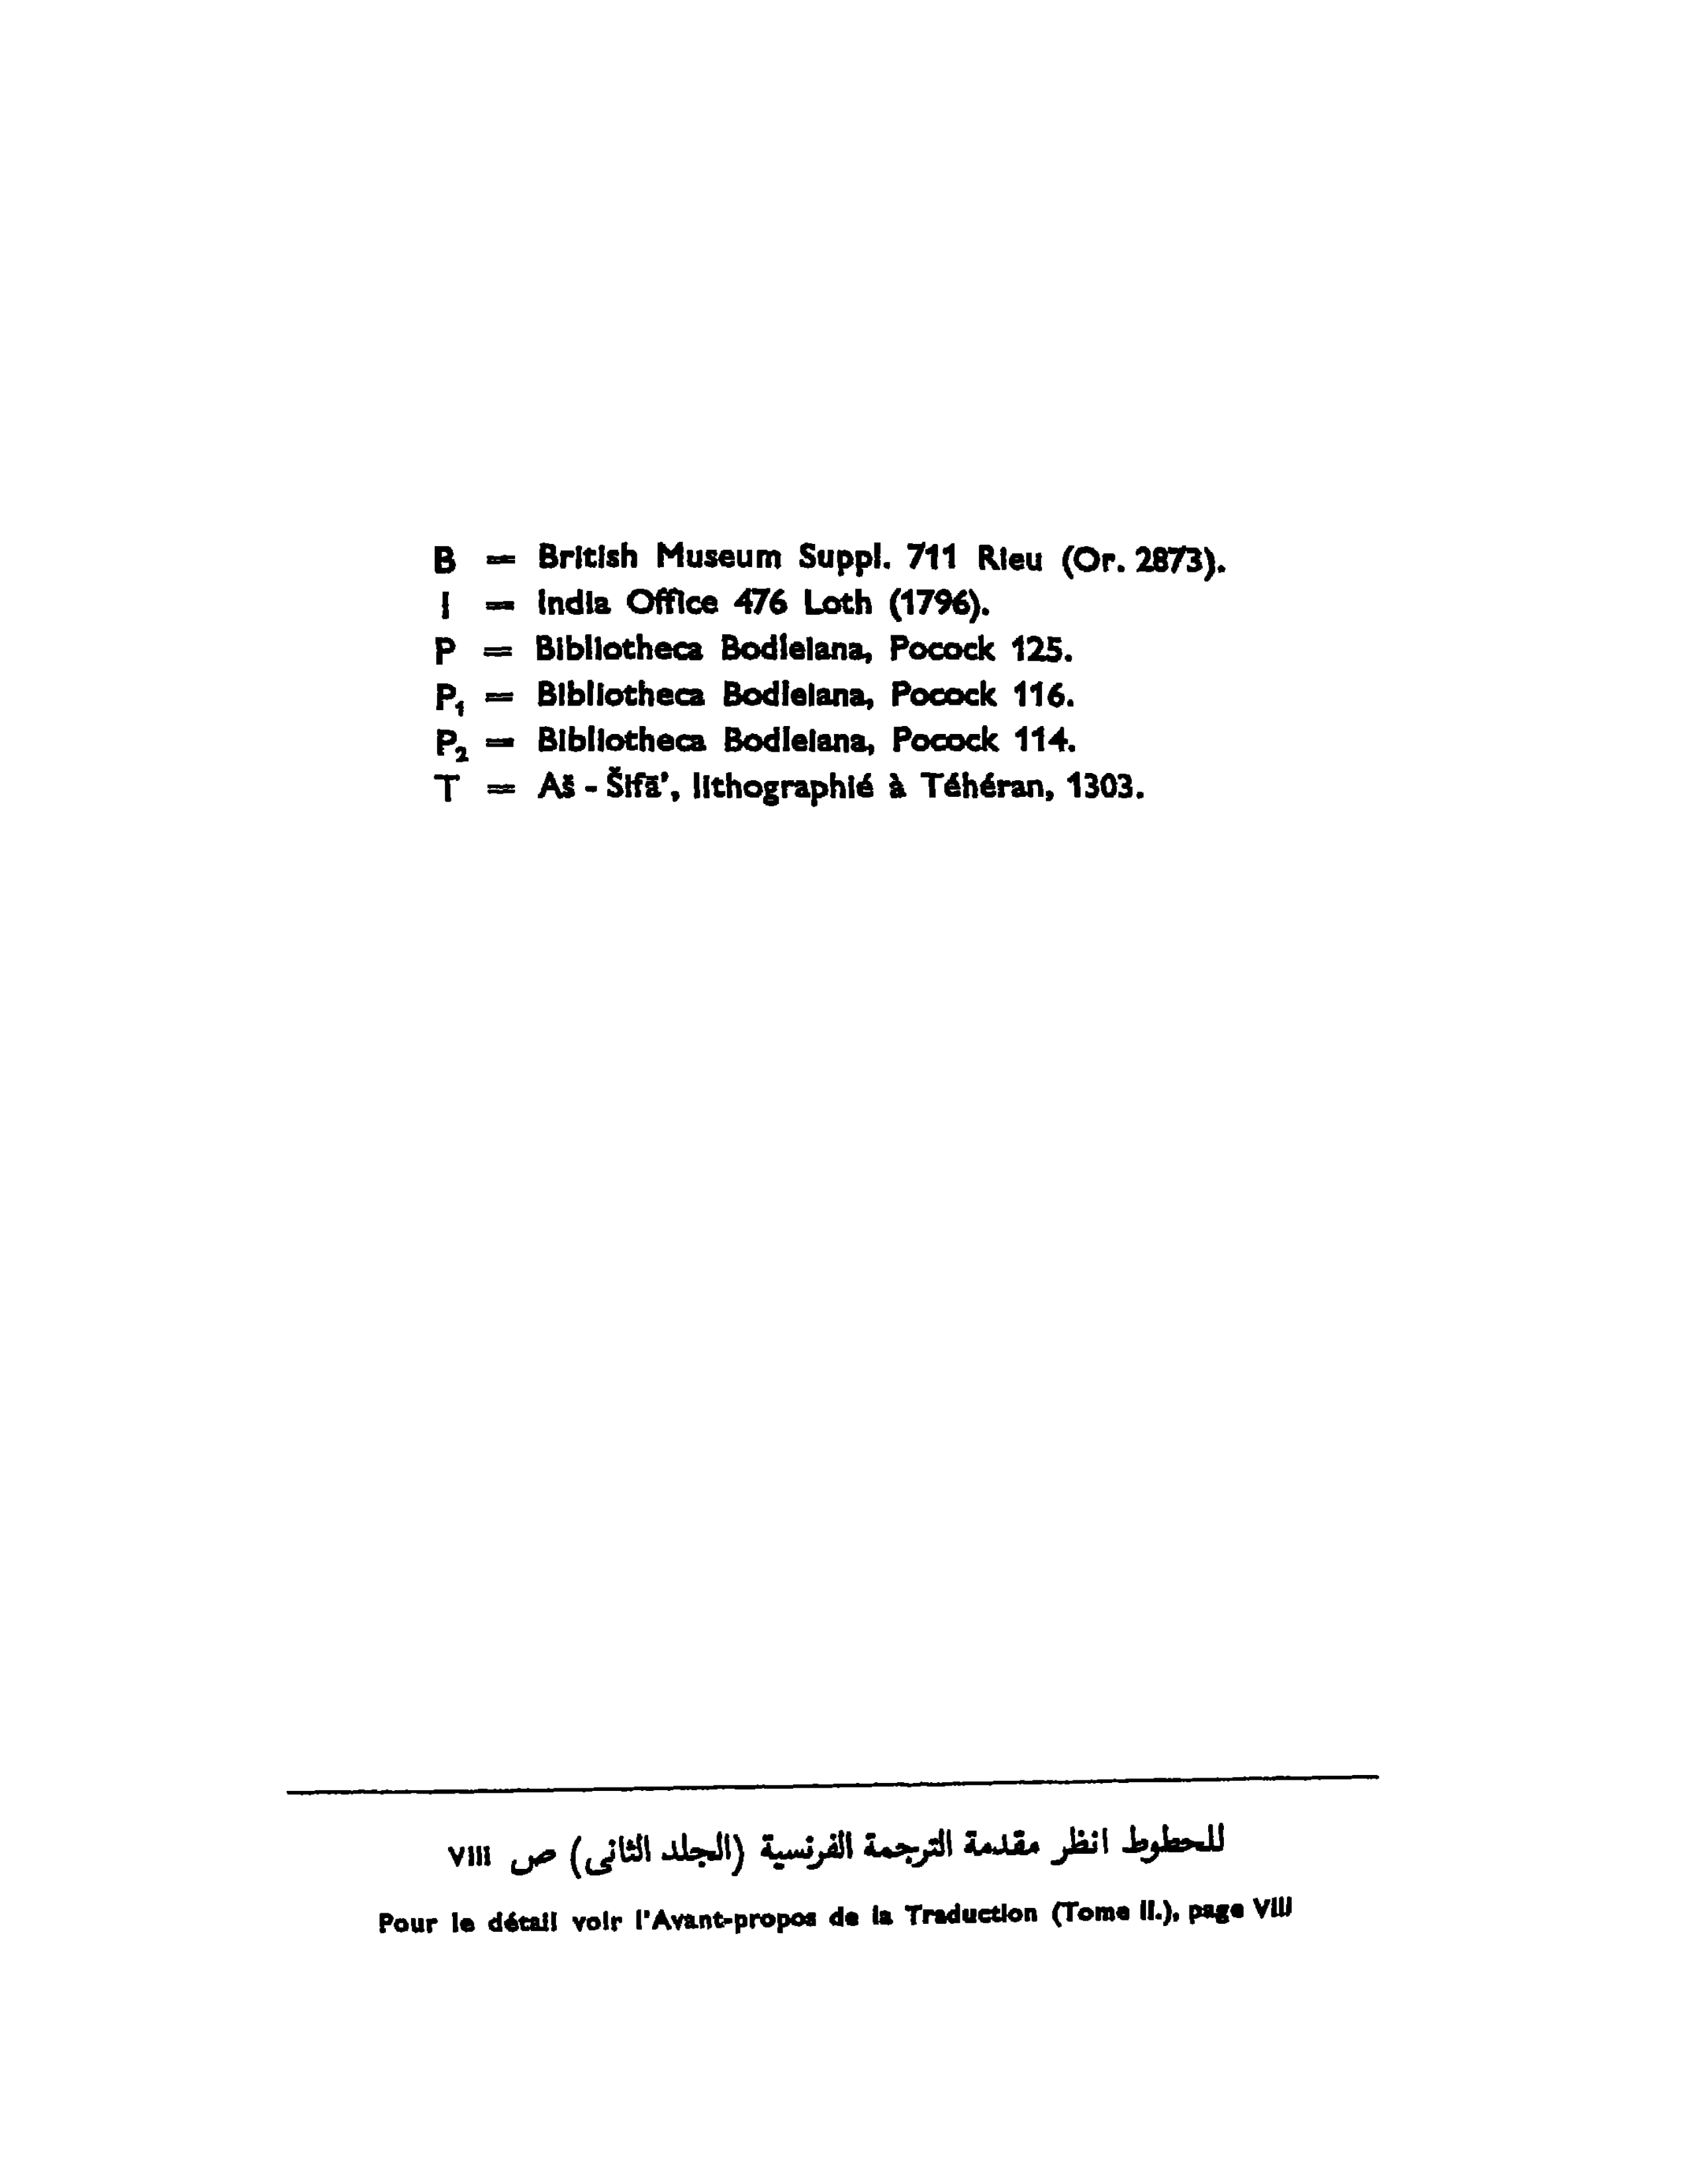 B = British Museum Suppl. 711 Rieu (Or. 2873).
I = India Office 476 Loth (1796).
P = Bibliotheca Bodleiana, Pocock 125.
P₁ = Bibliotheca Bodleiana, Pocock 116.
P₂ = Bibliotheca Bodleiana, Pocock 114.
T = Aš - Šifā', lithographié à Téhéran, 1303.
للحطوط انظر مقدمة الترجمة الفرنسية (الجلد الثانى) ص VIII
Pour le détail voir l'Avant-propos de la Traduction (Tome II.), page VIII